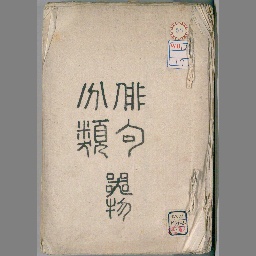 俳句
分類
器物